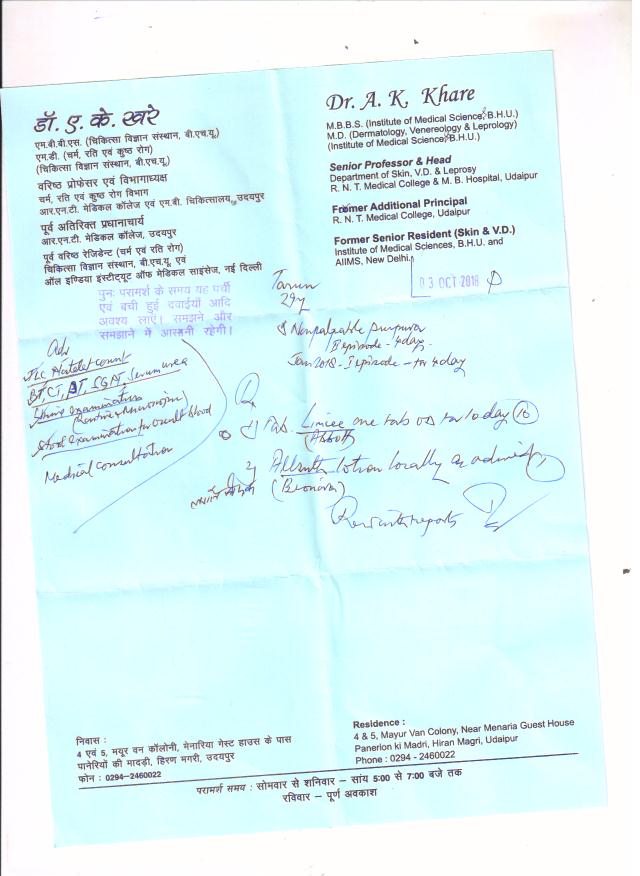 डॉ. ए. के. खरे
एम.बी.बी.एस. (चिकित्सा विज्ञान संस्थान, बी.एच.यू.)
एम.डी. (चर्म, रति एवं कुष्ठ रोग)
(चिकित्सा विज्ञान संस्थान, बी.एच.यू.)
वरिष्ठ प्रोफेसर एवं विभागाध्यक्ष
चर्म, रति एवं कुष्ठ रोग विभाग
आर.एन.टी. मेडिकल कॉलेज एवं एम.बी. चिकित्सालय, उदयपुर
पूर्व अतिरिक्त प्रधानाचार्य
आर.एन.टी. मेडिकल कॉलेज, उदयपुर
पूर्व वरिष्ठ रेजिडेन्ट (चर्म एवं रति रोग)
चिकित्सा विज्ञान संस्थान, बी.एच.यू. एवं
ऑल इण्डिया इंस्टीट्यूट ऑफ मेडिकल साइंसेज, नई दिल्ली
Dr. A. K. Khare
M.B.B.S. (Institute of Medical Science, B.H.U.)
M.D. (Dermatology, Venereology & Leprology)
(Institute of Medical Science, B.H.U.)
Senior Professor & Head
Department of Skin, V.D. & Leprosy
R. N. T. Medical College & M. B. Hospital, Udaipur
Former Additional Principal
R. N. T. Medical College, Udaipur
Former Senior Resident (Skin & V.D.)
Institute of Medical Sciences, B.H.U. and
AIIMS, New Delhi.
03 OCT 2018
पुनः परामर्श के समय यह पर्ची
एवं बची हुई दवाईयाँ आदि
अवश्य लाएं। समझने और
समझाने में आसानी रहेगी।
Tarun
29y
Nonpalpable purpura
II episode - 4day
Jan 2018 - I episode - for 4day
Adv
TLC Platelet count
BT, CT, PT, SGPT, Serum urea
Urine examination
(Routine & Microscopic)
Stool Examination for occult blood
Medical Consultation
Rx
1) Tab. Limcee one tab OD for 10 day (10)
(Abbott)
2) lotion locally as advised
Rev with reports
निवास :
4 एवं 5, मयूर वन कॉलोनी, मेनारिया गेस्ट हाउस के पास
पानेरियों की मादड़ी, हिरण मगरी, उदयपुर
फोन : 0294-2460022
Residence :
4 & 5, Mayur Van Colony, Near Menaria Guest House
Panerion ki Madri, Hiran Magri, Udaipur
Phone : 0294 - 2460022
परामर्श समय : सोमवार से शनिवार – सांय 5:00 से 7:00 बजे तक
रविवार – पूर्ण अवकाश